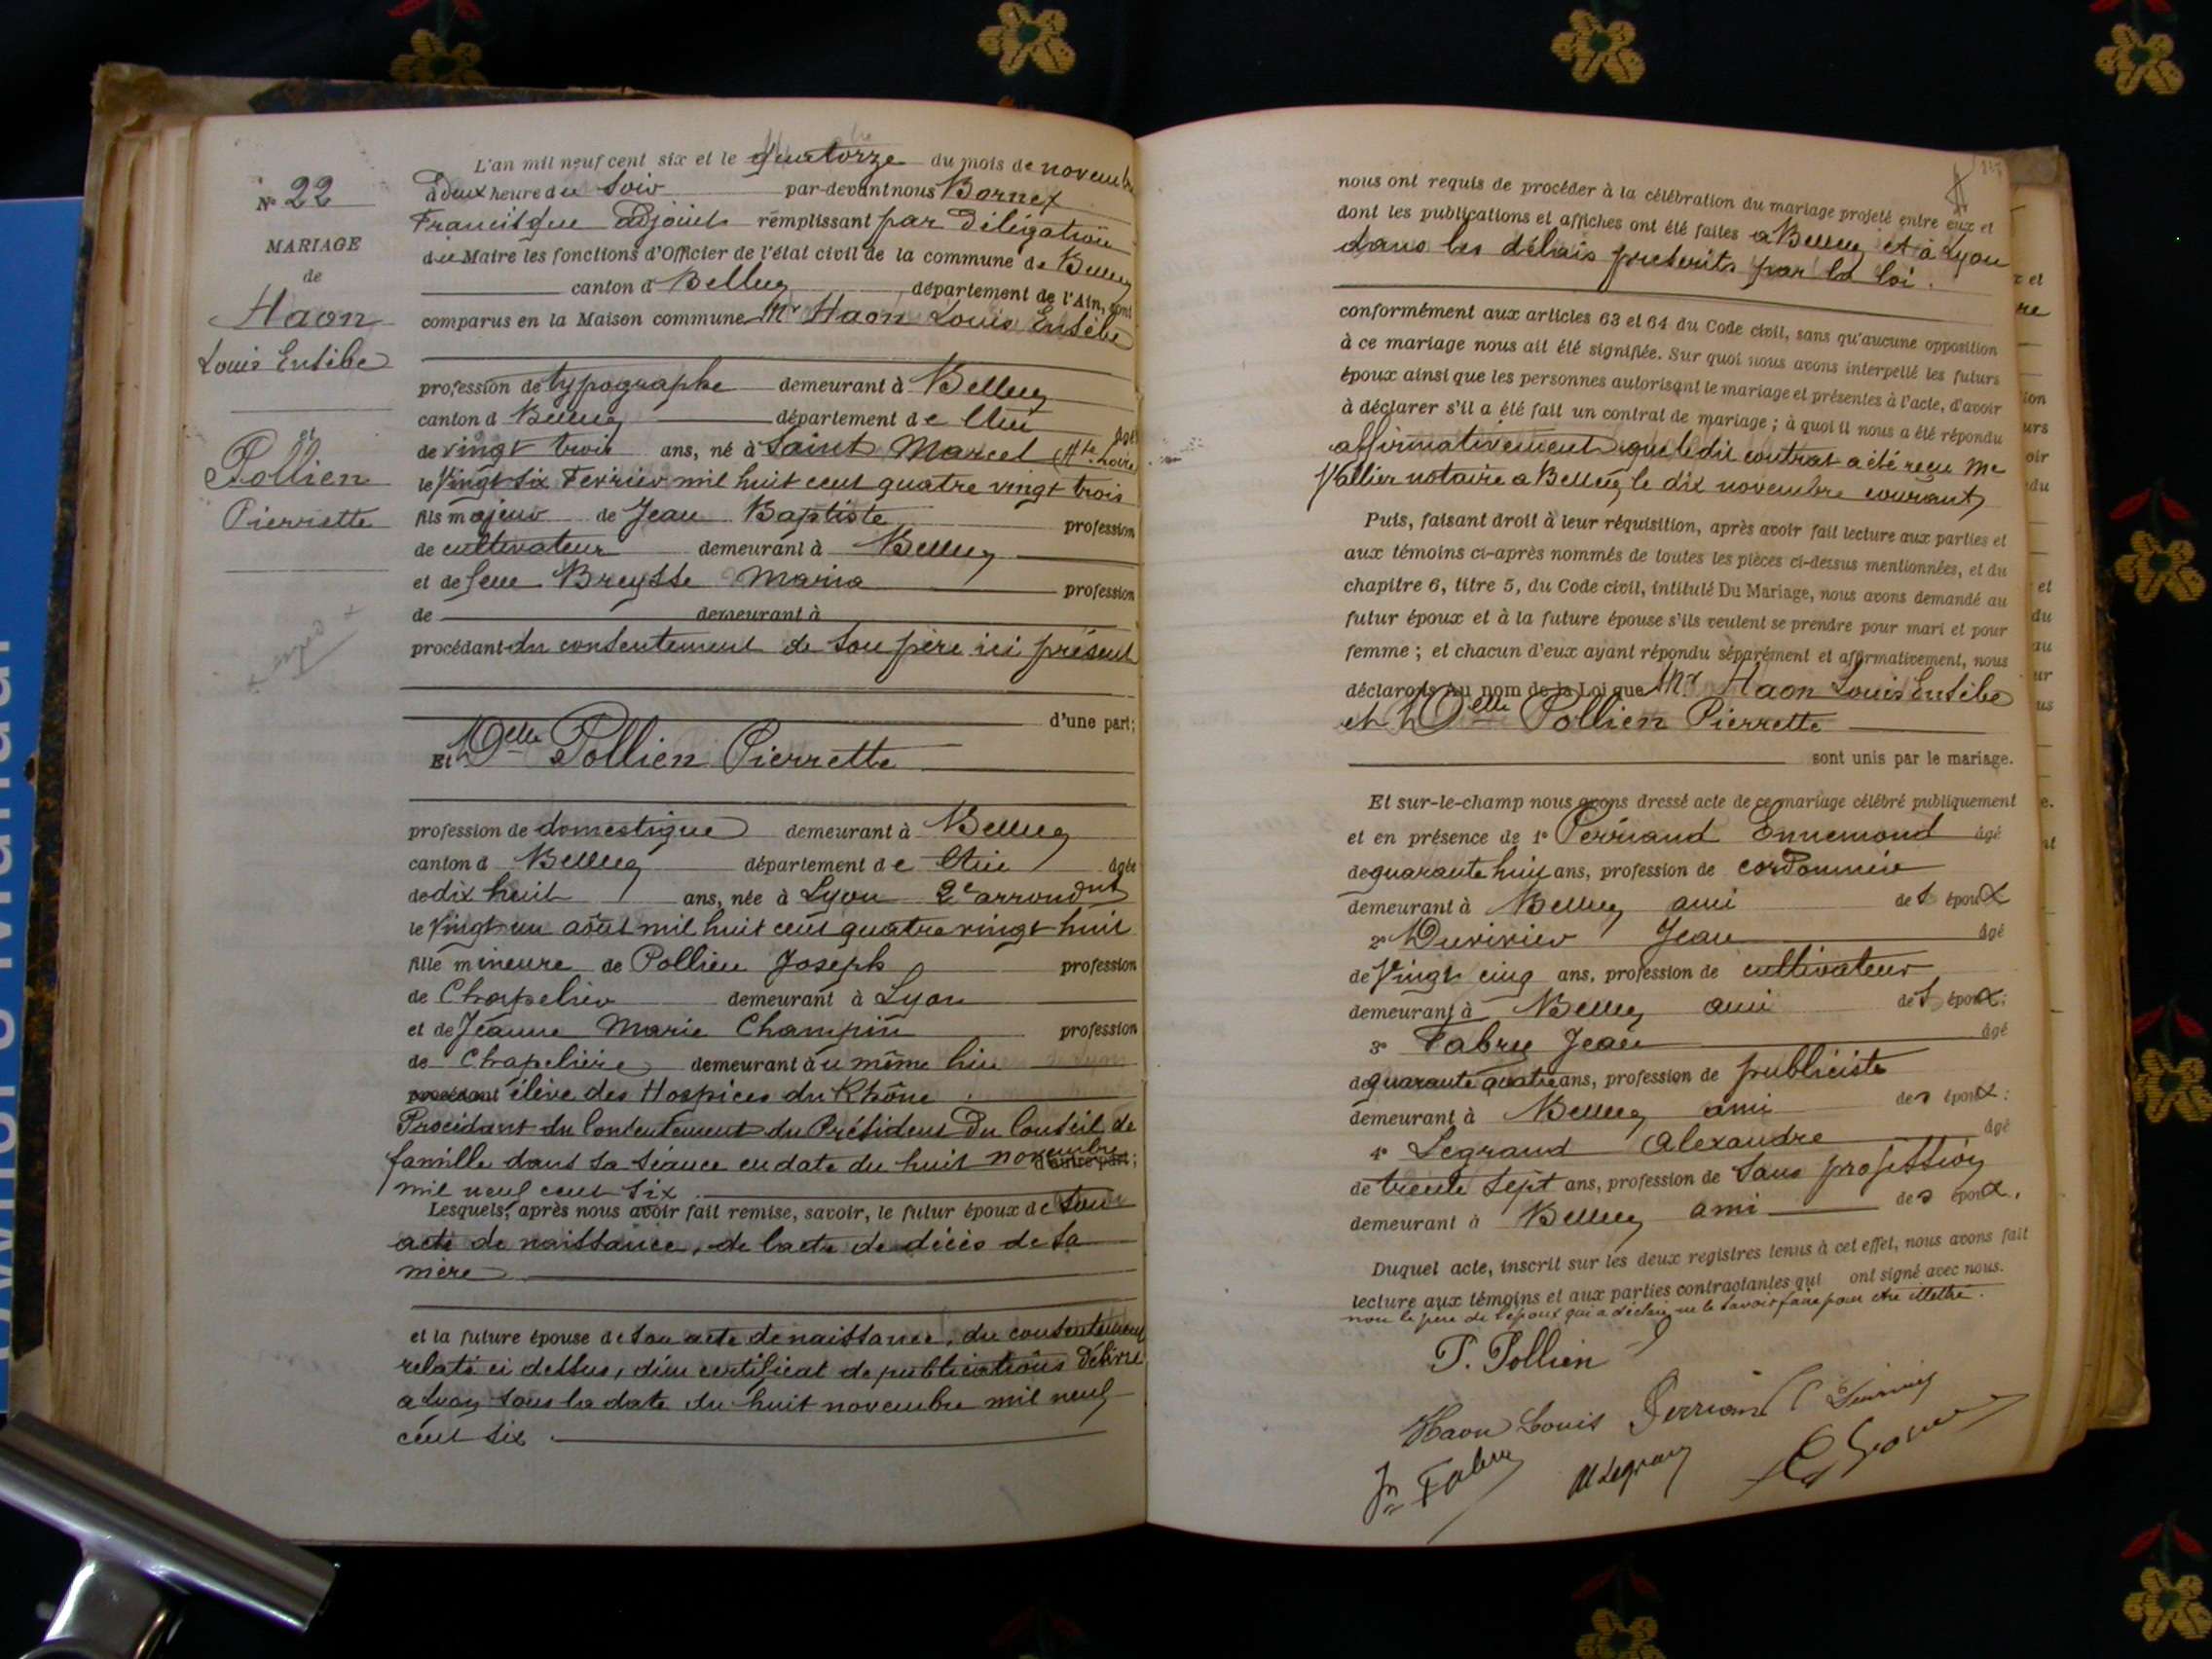 N° 22
MARIAGE
de
Haon
Louis Eusèbe
et
Pollien
Pierrette
L'an mil neuf cent six et le quatorze du mois de novembre
à deux heure du soir par-devant nous Bornet
Francisque adjoint remplissant par Délégation
du Maire les fonctions d'Officier de l'état civil de la commune de Belley
canton d Belley département de l'Ain, sont
comparus en la Maison commune Mr Haon Louis Eusèbe
profession de typographe demeurant à Belley
canton d Belley département de l'Ain âgé
de vingt trois ans, né à Saint Marcel (Hte Loire)
le Vingt six Fevrier mil huit cent quatre vingt trois
fils majeur de Jean Baptiste profession
de cultivateur demeurant à Belley
et de feue Breysse Maria profession
de demeurant à
procédant du consentement de son père ici présent
d'une part;
Et Delle Pollien Pierrette
profession de domestique demeurant à Belley
canton d Belley département de Ain âgée
de dix huit ans, née à Lyon 2e arrondnt
le Vingt un août mil huit cent quatre vingt huit
fille mineure de Pollien Joseph profession
de Chapelier demeurant à Lyon
et de Jeanne Marie Champin profession
de Chapelière demeurant au même lieu
procédant élève des Hospices du Rhône
Procédant du Consentement du Président Du Conseil de
famille dans sa séance en date du huit novembre d'autre part;
mil neuf cent six.
Lesquels, après nous avoir fait remise, savoir, le futur époux de son
acte de naissance, de l'acte de décès de sa
mère
et la future épouse de son acte de naissance, du consentement
relaté ci dessus, d'un certificat de publications délivré
a Lyon sous la date du huit novembre mil neuf
cent six.
nous ont requis de procéder à la célébration du mariage projeté entre eux et
dont les publications et affiches ont été faites a Belley et à Lyon
dans les délais prescrits par la loi.
conformément aux articles 63 et 64 du Code civil, sans qu'aucune opposition
à ce mariage nous ait été signifiée. Sur quoi nous avons interpellé les futurs
époux ainsi que les personnes autorisant le mariage et présentes à l'acte, d'avoir
à déclarer s'il a été fait un contrat de mariage; à quoi il nous a été répondu
affirmativement que le dit contrat a été reçu Me
Vallier notaire a Belley le dix novembre courant
Puis, faisant droit à leur réquisition, après avoir fait lecture aux parties et
aux témoins ci-après nommés de toutes les pièces ci-dessus mentionnées, et du
chapitre 6, titre 5, du Code civil, intitulé Du Mariage, nous avons demandé au
futur époux et à la future épouse s'ils veulent se prendre pour mari et pour
femme; et chacun d'eux ayant répondu séparément et affirmativement, nous
déclarons au nom de la Loi que Mr Haon Louis Eusèbe
et Delle Pollien Pierrette
sont unis par le mariage.
Et sur-le-champ nous avons dressé acte de ce mariage célébré publiquement
et en présence de 1° Perriand Ennemond âgé
de quarante huit ans, profession de cordonnier
demeurant à Belley ami des époux
2° Duvivier Jean âgé
de Vingt cinq ans, profession de cultivateur
demeurant à Belley ami des époux;
3° Fabry Jean âgé
de quarante quatre ans, profession de publiciste
demeurant à Belley ami des époux;
4° Legrand Alexandre âgé
de trente sept ans, profession de Sans profession
demeurant à Belley ami des époux.
Duquel acte, inscrit sur les deux registres tenus à cet effet, nous avons fait
lecture aux témoins et aux parties contractantes qui ont signé avec nous.
non le père de l'époux qui a déclaré ne le savoir faire pour être illettré.
P. Pollien
Haon Louis Perriand Duvivier
Jn Fabry Al Legrand